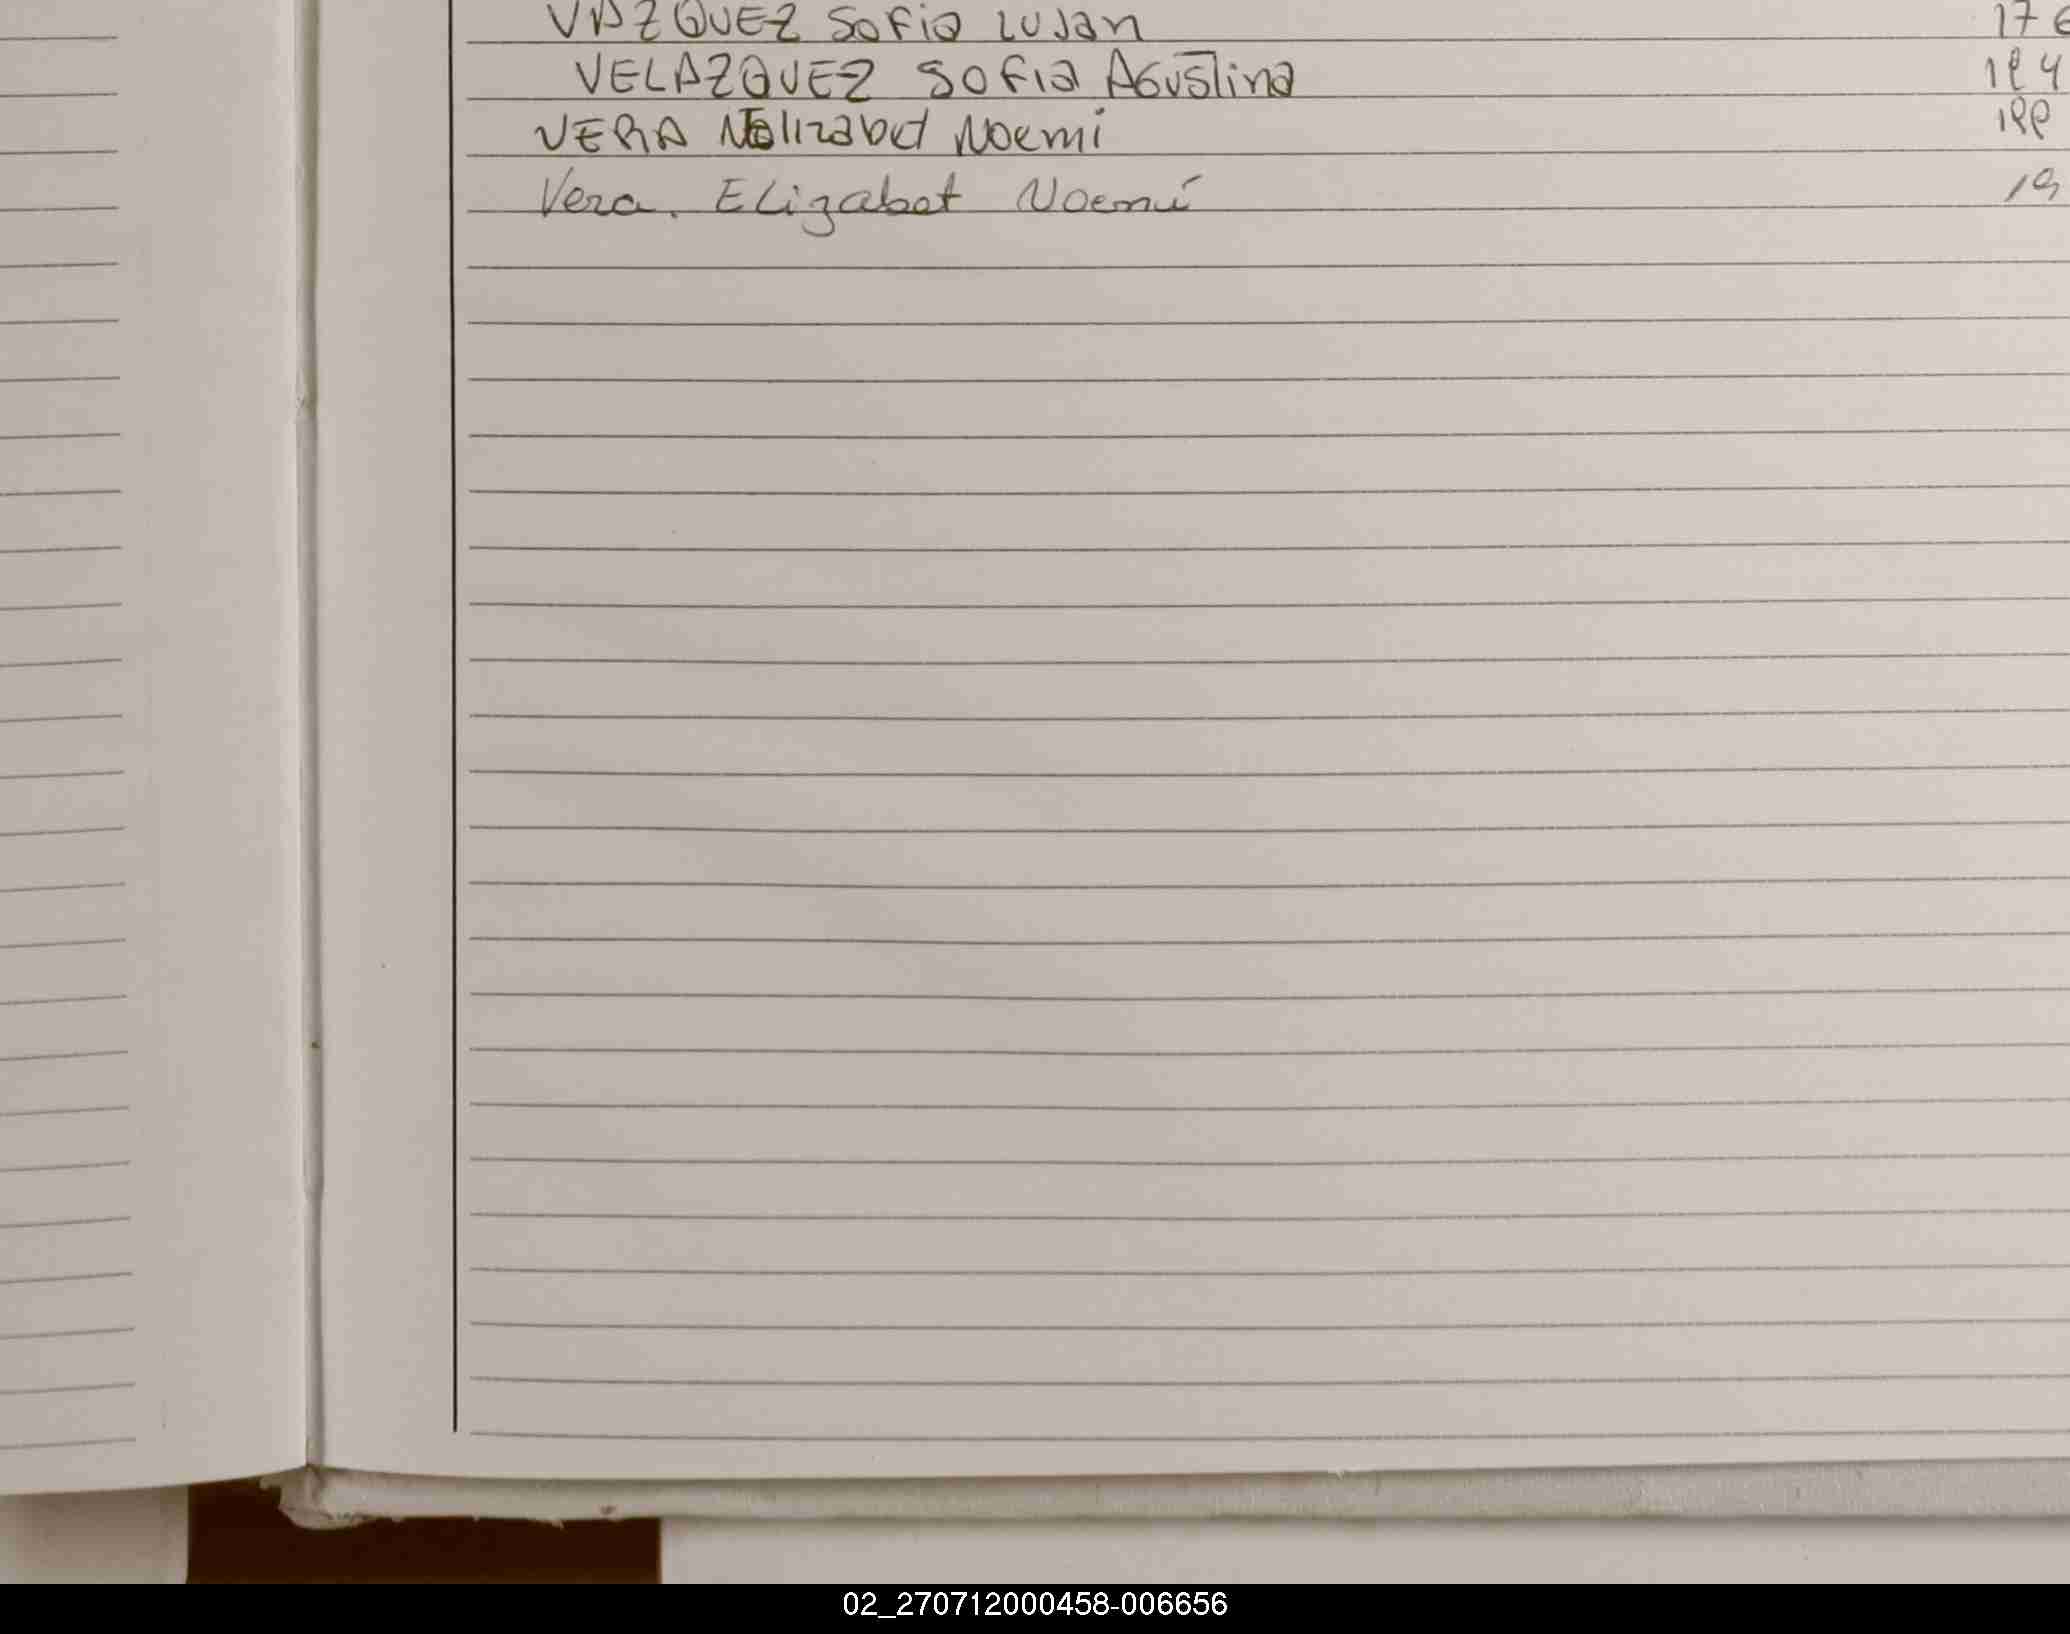 VAZQUEZ Sofia Lujan 176
VELAZQUEZ SOFIA AGUSTINA 184
VERA Noemi 188
Vera. Elizabet Noemí 19
02_270712000458-006656